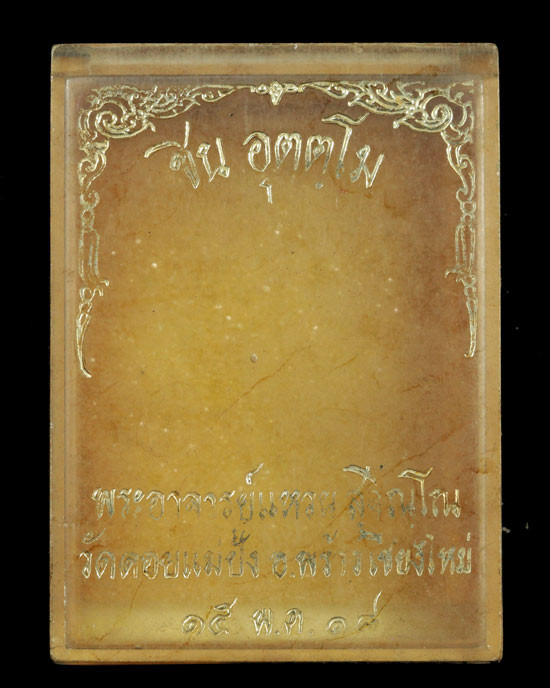 รุ่น อุตฺตโม
พระอาจารย์แหวน สุจิณฺโณ
วัดดอยแม่ปั๋ง อ.พร้าว เชียงใหม่
๑๕ พ.ค. ๑๘